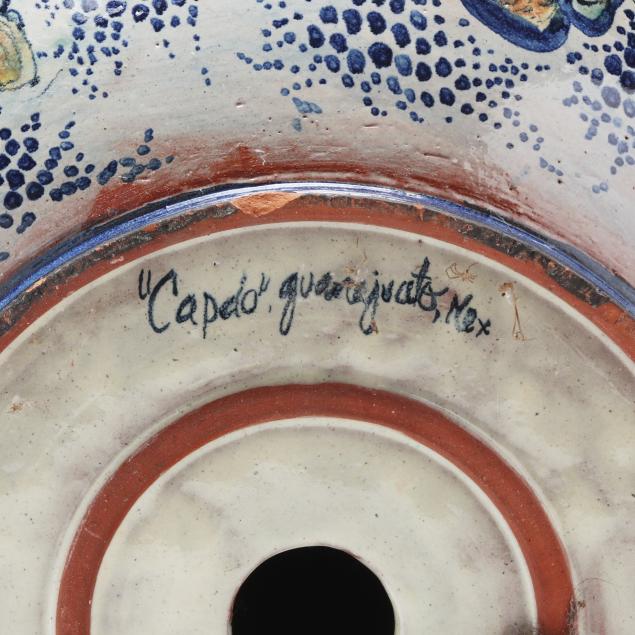 "Capelo", guanajuato, Mex